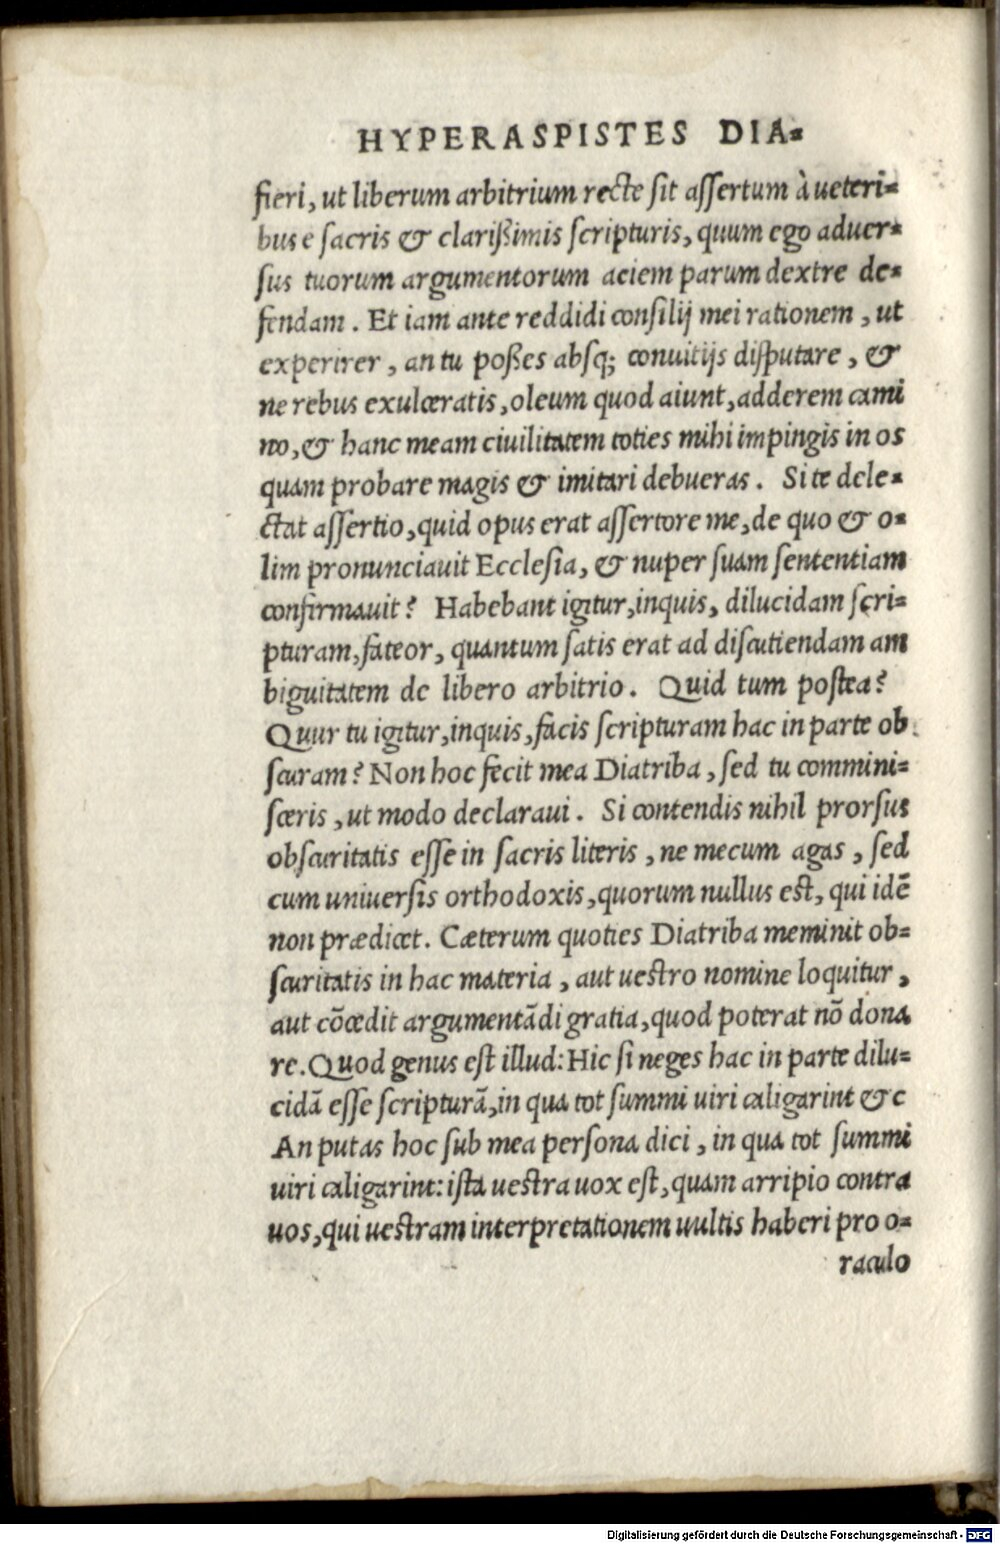 HYPERASPISTES DIA=
fieri, ut liberum arbitrium recte sit assertum à ueteri=
bus e sacris & clarißimis scripturis, quum ego aduer=
sus tuorum argumentorum aciem parum dextre de=
fendam. Et iam ante reddidi consilij mei rationem, ut
experirer, an tu poßes absq; conuitijs disputare, &
ne rebus exulceratis, oleum quod aiunt, adderem cami
no, & hanc meam ciuilitatem toties mihi impingis in os
quam probare magis & imitari debueras. Si te dele=
ctat assertio, quid opus erat assertore me, de quo & o=
lim pronunciauit Ecclesia, & nuper suam sententiam
confirmauit? Habebant igitur, inquis, dilucidam scri=
pturam, fateor, quantum satis erat ad discutiendam am
biguitatem de libero arbitrio. Quid tum postea?
Quur tu igitur, inquis, facis scripturam hac in parte ob
scuram? Non hoc fecit mea Diatriba, sed tu commini=
sceris, ut modo declaraui. Si contendis nihil prorsus
obscuritatis esse in sacris literis, ne mecum agas, sed
cum uniuersis orthodoxis, quorum nullus est, qui idē
non prædicet. Cæterum quoties Diatriba meminit ob=
scuritatis in hac materia, aut uestro nomine loquitur,
aut cōcedit argumentādi gratia, quod poterat nō dona
re. Quod genus est illud: Hic si neges hac in parte dilu=
cidā esse scripturā, in qua tot summi uiri caligarint &c
An putas hoc sub mea persona dici, in qua tot summi
uiri caligarint: ista uestra uox est, quam arripio contra
uos, qui uestram interpretationem uultis haberi pro o=
raculo
Digitalisierung gefördert durch die Deutsche Forschungsgemeinschaft - DFG